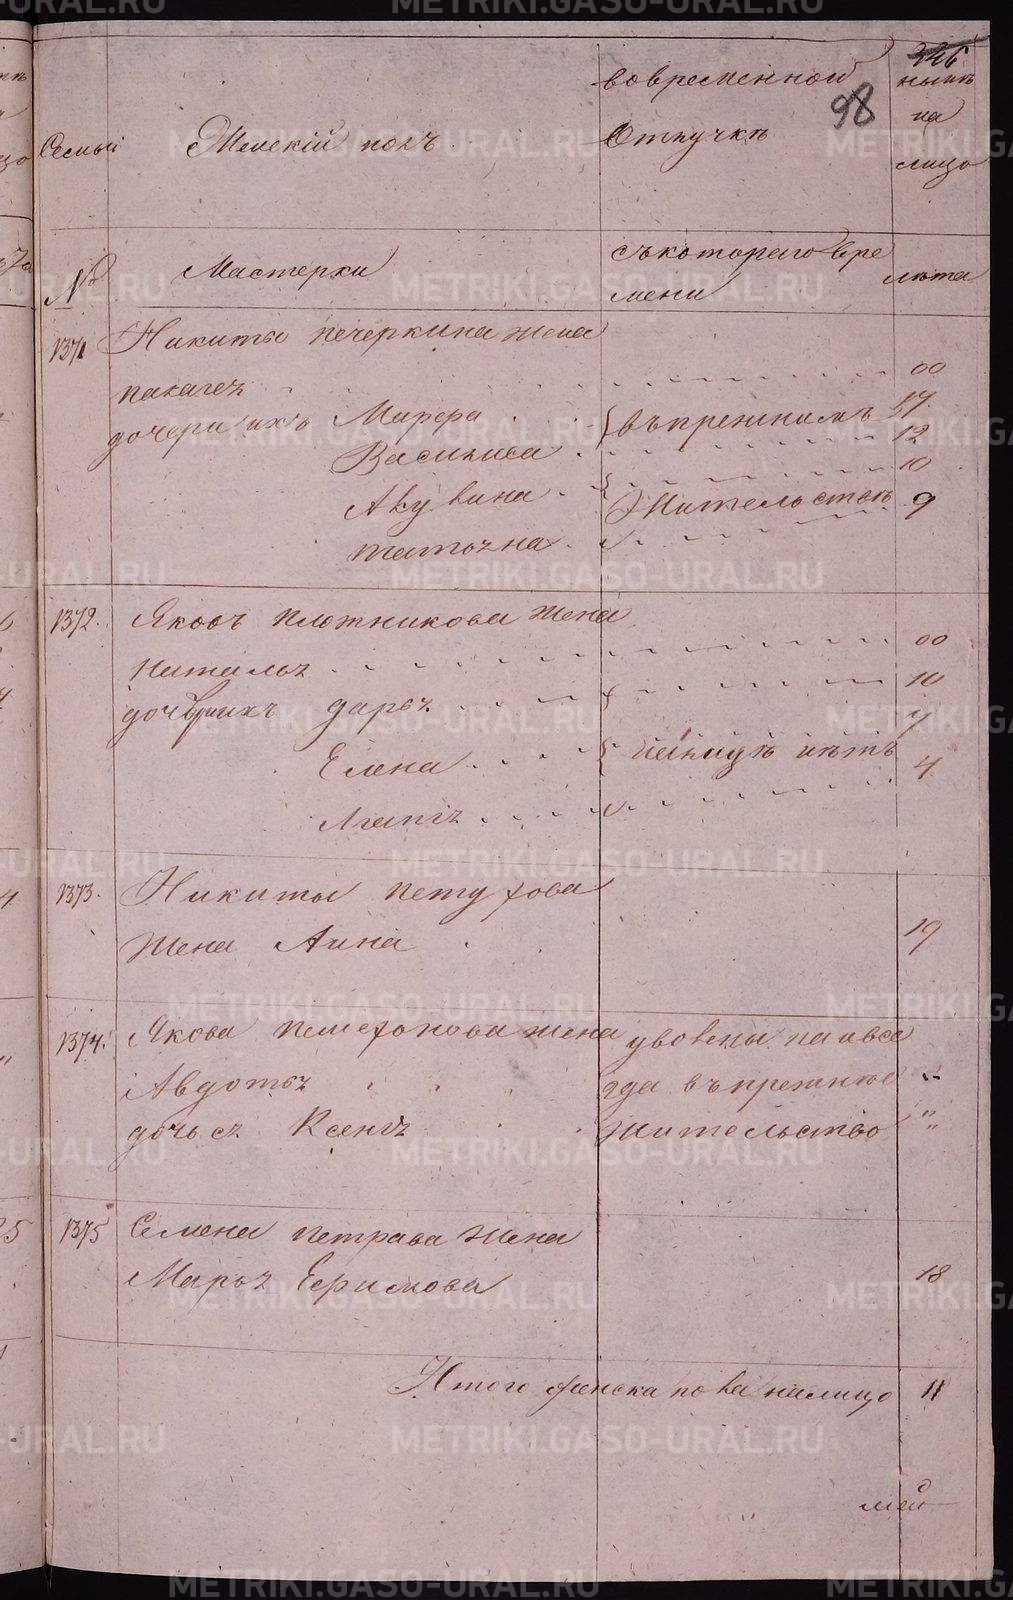 346
98
Семьи
Женскій полъ
вовременной
Отлучкѣ
нынѣ
на
лицо
№
Мастерки
съкотораго вре
мени
лѣта
1371
Никиты Печеркина жена
палагея
00
дочери ихъ Марфа
въпрежнимъ
17
Василиса
12
Акулина
10
Жительствѣ
9
татьяна
1372.
Яковъ плотникова жена
Наталья
00
дочери ихъ дарья
10
7
Елена
нѣтъ
4
Агапія
1373.
Никиты петухова
жена Анна
19
1374.
Якова жена
навсе
Авдотья
гда въпрежнѣе
дочь ея Ксенія
жительство
1375
Семена петрова жена
Марья Ефимова
18
Итого женска пола налицо
11
METRIKI.GASO-URAL.RU